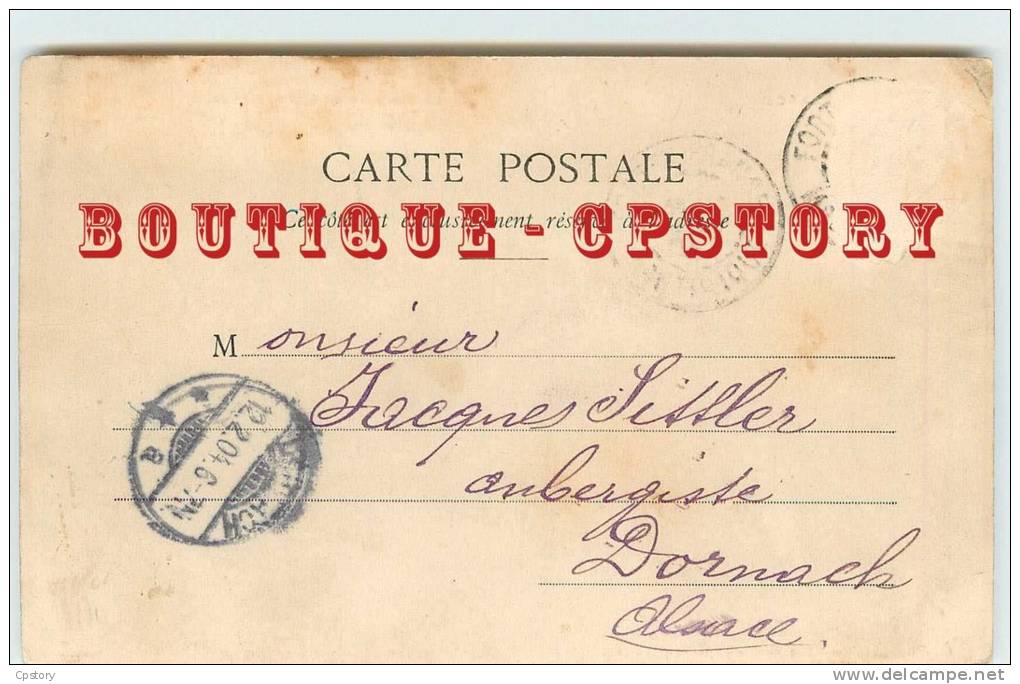 CARTE POSTALE
BOUTIQUE - CPSTORY
Ce côté est exclusivement réservé à l'adresse
Monsieur
Jacques Sittler
aubergiste
Dornach
Alsace.
12.2.04.6-7N
a
Cpstory
delcampe.net